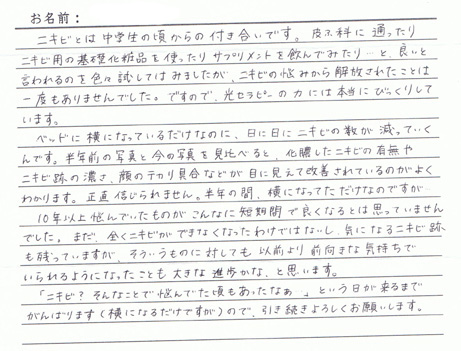 お名前:
ニキビとは中学生の頃からの付き合いです。皮ふ科に通ったり
ニキビ用の基礎化粧品を使ったりサプリメントを飲んでみたり…と、良いと
言われるのを色々試してはみましたが、ニキビの悩みから解放されたことは
一度もありませんでした。ですので、光セラピーの力には本当にびっくりして
います。
ベッドに横になっているだけなのに、日に日にニキビの数が減っていく
んです。半年前の写真と今の写真を見比べると、化膿したニキビの有無や
ニキビ跡の濃さ、顔のテカリ具合などが目に見えて改善されているのがよく
わかります。正直信じられません。半年の間、横になってただけなのですが…
10年以上悩んでいたものがこんなに短期間で良くなるとは思っていません
でした。まだ、全くニキビができなくなったわけではないし、気になるニキビ跡
も残っていますが、そういうものに対しても以前より前向きな気持ちで
いられるようになったことも大きな進歩かな、と思います。
「ニキビ?そんなことで悩んでた頃もあったなぁ…」という日が来るまで
がんばります(横になるだけですが)ので、引き続きよろしくお願いします。